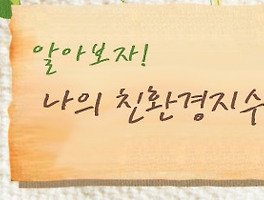 알아보자!
나의 친환경지수